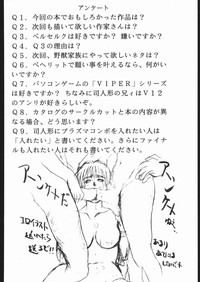 アンケート
Q1、今回の本でおもしろかった作品は？
Q2、次回も描いて欲しい作家さんは？
Q3、ベルセルクは好きですか？ 嫌いですか？
Q4、Q3の理由は？
Q5、次回、野獣家族にやって欲しいネタは？
Q6、ベヘリットで願い事を叶えるなら、何がいいですか？
Q7、パソコンゲームの「VIPER」シリーズは好きですか？ ちなみに司人形の兄ィはV12のアンリが好きらしいぞ。
Q8、カタログのサークルカットと本の内容が異なる場合、どう思います？
Q9、司人形にプラズマコンボを入れたい人は「入れたい」と書いてください。さらにファイナルも入れたい人はそれも書いてください。
アンケートだ
アンケメ